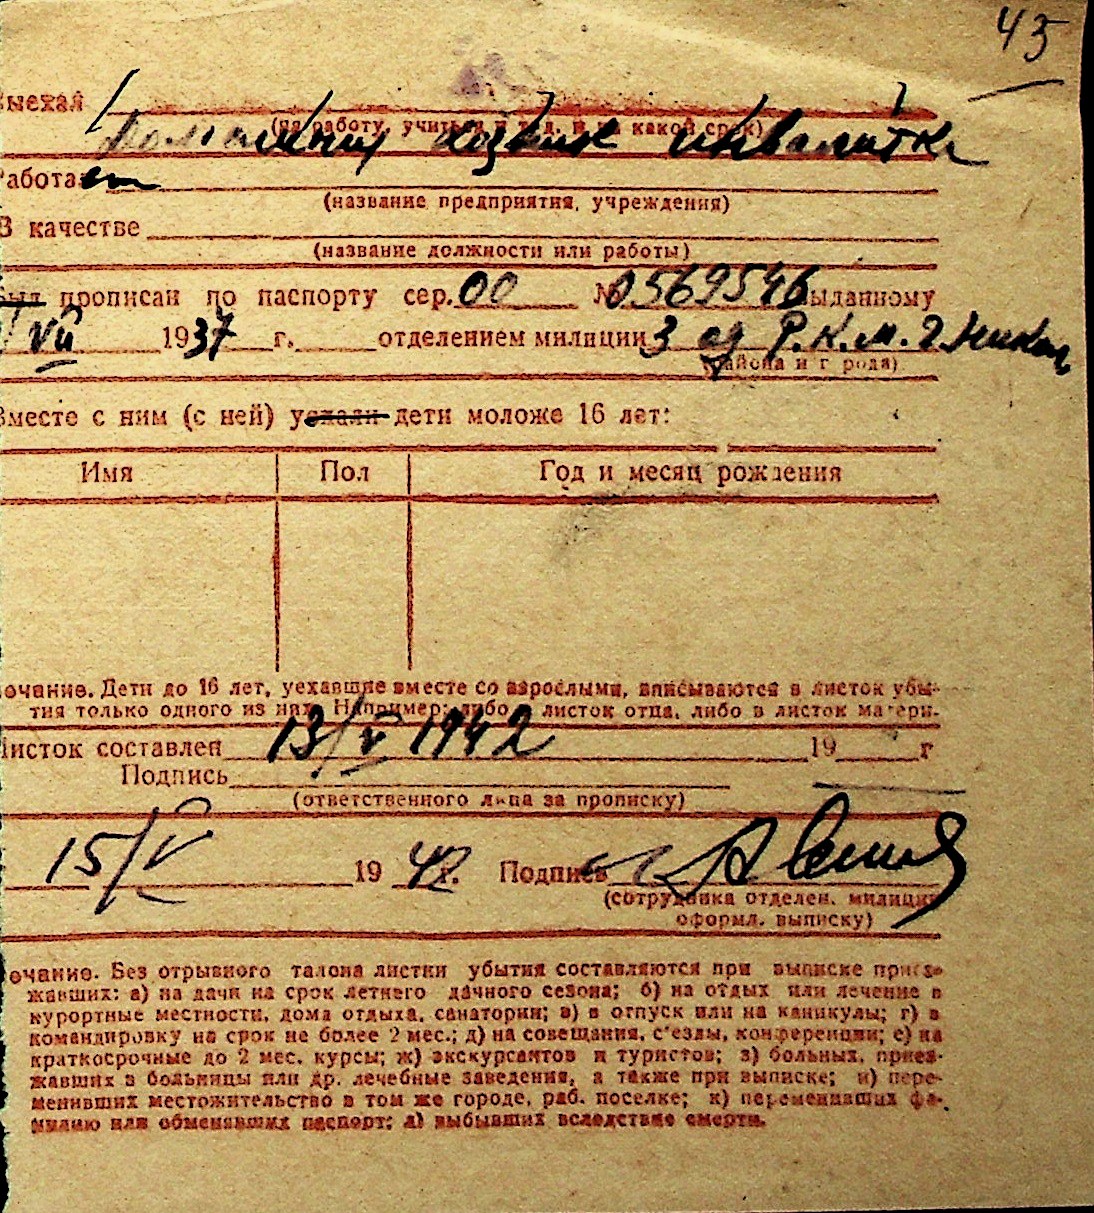 43
ыехал
(на работу, учиться и т. д. и на какой срок)
Работа
(название предприятия, учреждения)
В качестве
(название должности или работы)
Был прописан по паспорту сер. 00 № 0569546 выданному
VII 1937 г. отделением милиции 3 Р.К.М. г.
(района и города)
Вместе с ним (с ней) уехали дети моложе 16 лет:
Имя Пол Год и месяц рождения
ечание. Дети до 16 лет, уехавшие вместе со взрослыми, вписываются в листок убы-
тия только одного из них. Например: либо в листок отца, либо в листок матери.
Листок составлен 13/V 1942 19 г
Подпись
(ответственного лица за прописку)
15/V 1942 г. Подпись
(сотрудника отделен. милиции
оформл. выписку)
ечание. Без отрывного талона листки убытия составляются при выписке приез-
жавших: а) на дачи на срок летнего дачного сезона; б) на отдых или лечение в
курортные местности, дома отдыха, санатории; в) в отпуск или на каникулы; г) в
командировку на срок не более 2 мес.; д) на совещания, с'езды, конференции; е) на
краткосрочные до 2 мес. курсы; ж) экскурсантов и туристов; з) больных, приез-
жавших в больницы или др. лечебные заведения, а также при выписке; и) пере-
менивших местожительство в том же городе, раб. поселке; к) переменивших фа-
милию или обменявших паспорт; л) выбывших вследствие смерти.